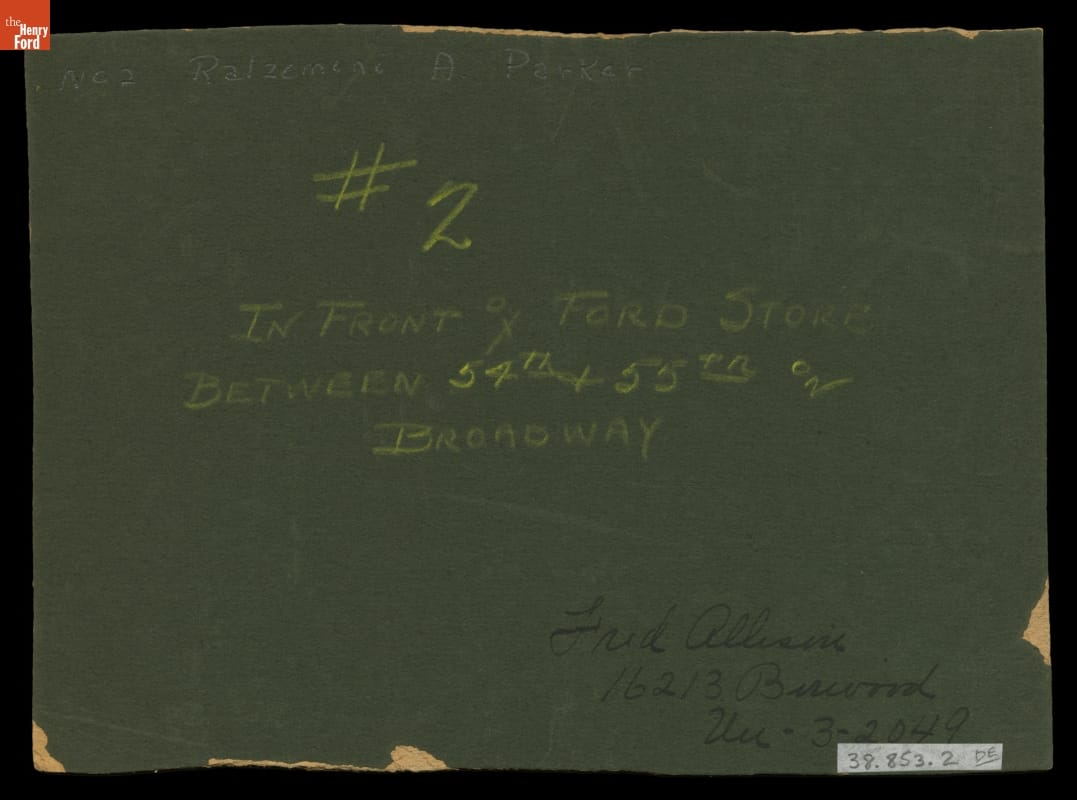 the
Henry
Ford
No 2 Ralzemond A. Parker
# 2
IN FRONT of FORD STORE
BETWEEN 54TH + 55TH on
BROADWAY
Fred Allison
16213 Birwood
Un-3-2049
38.853.2 DE